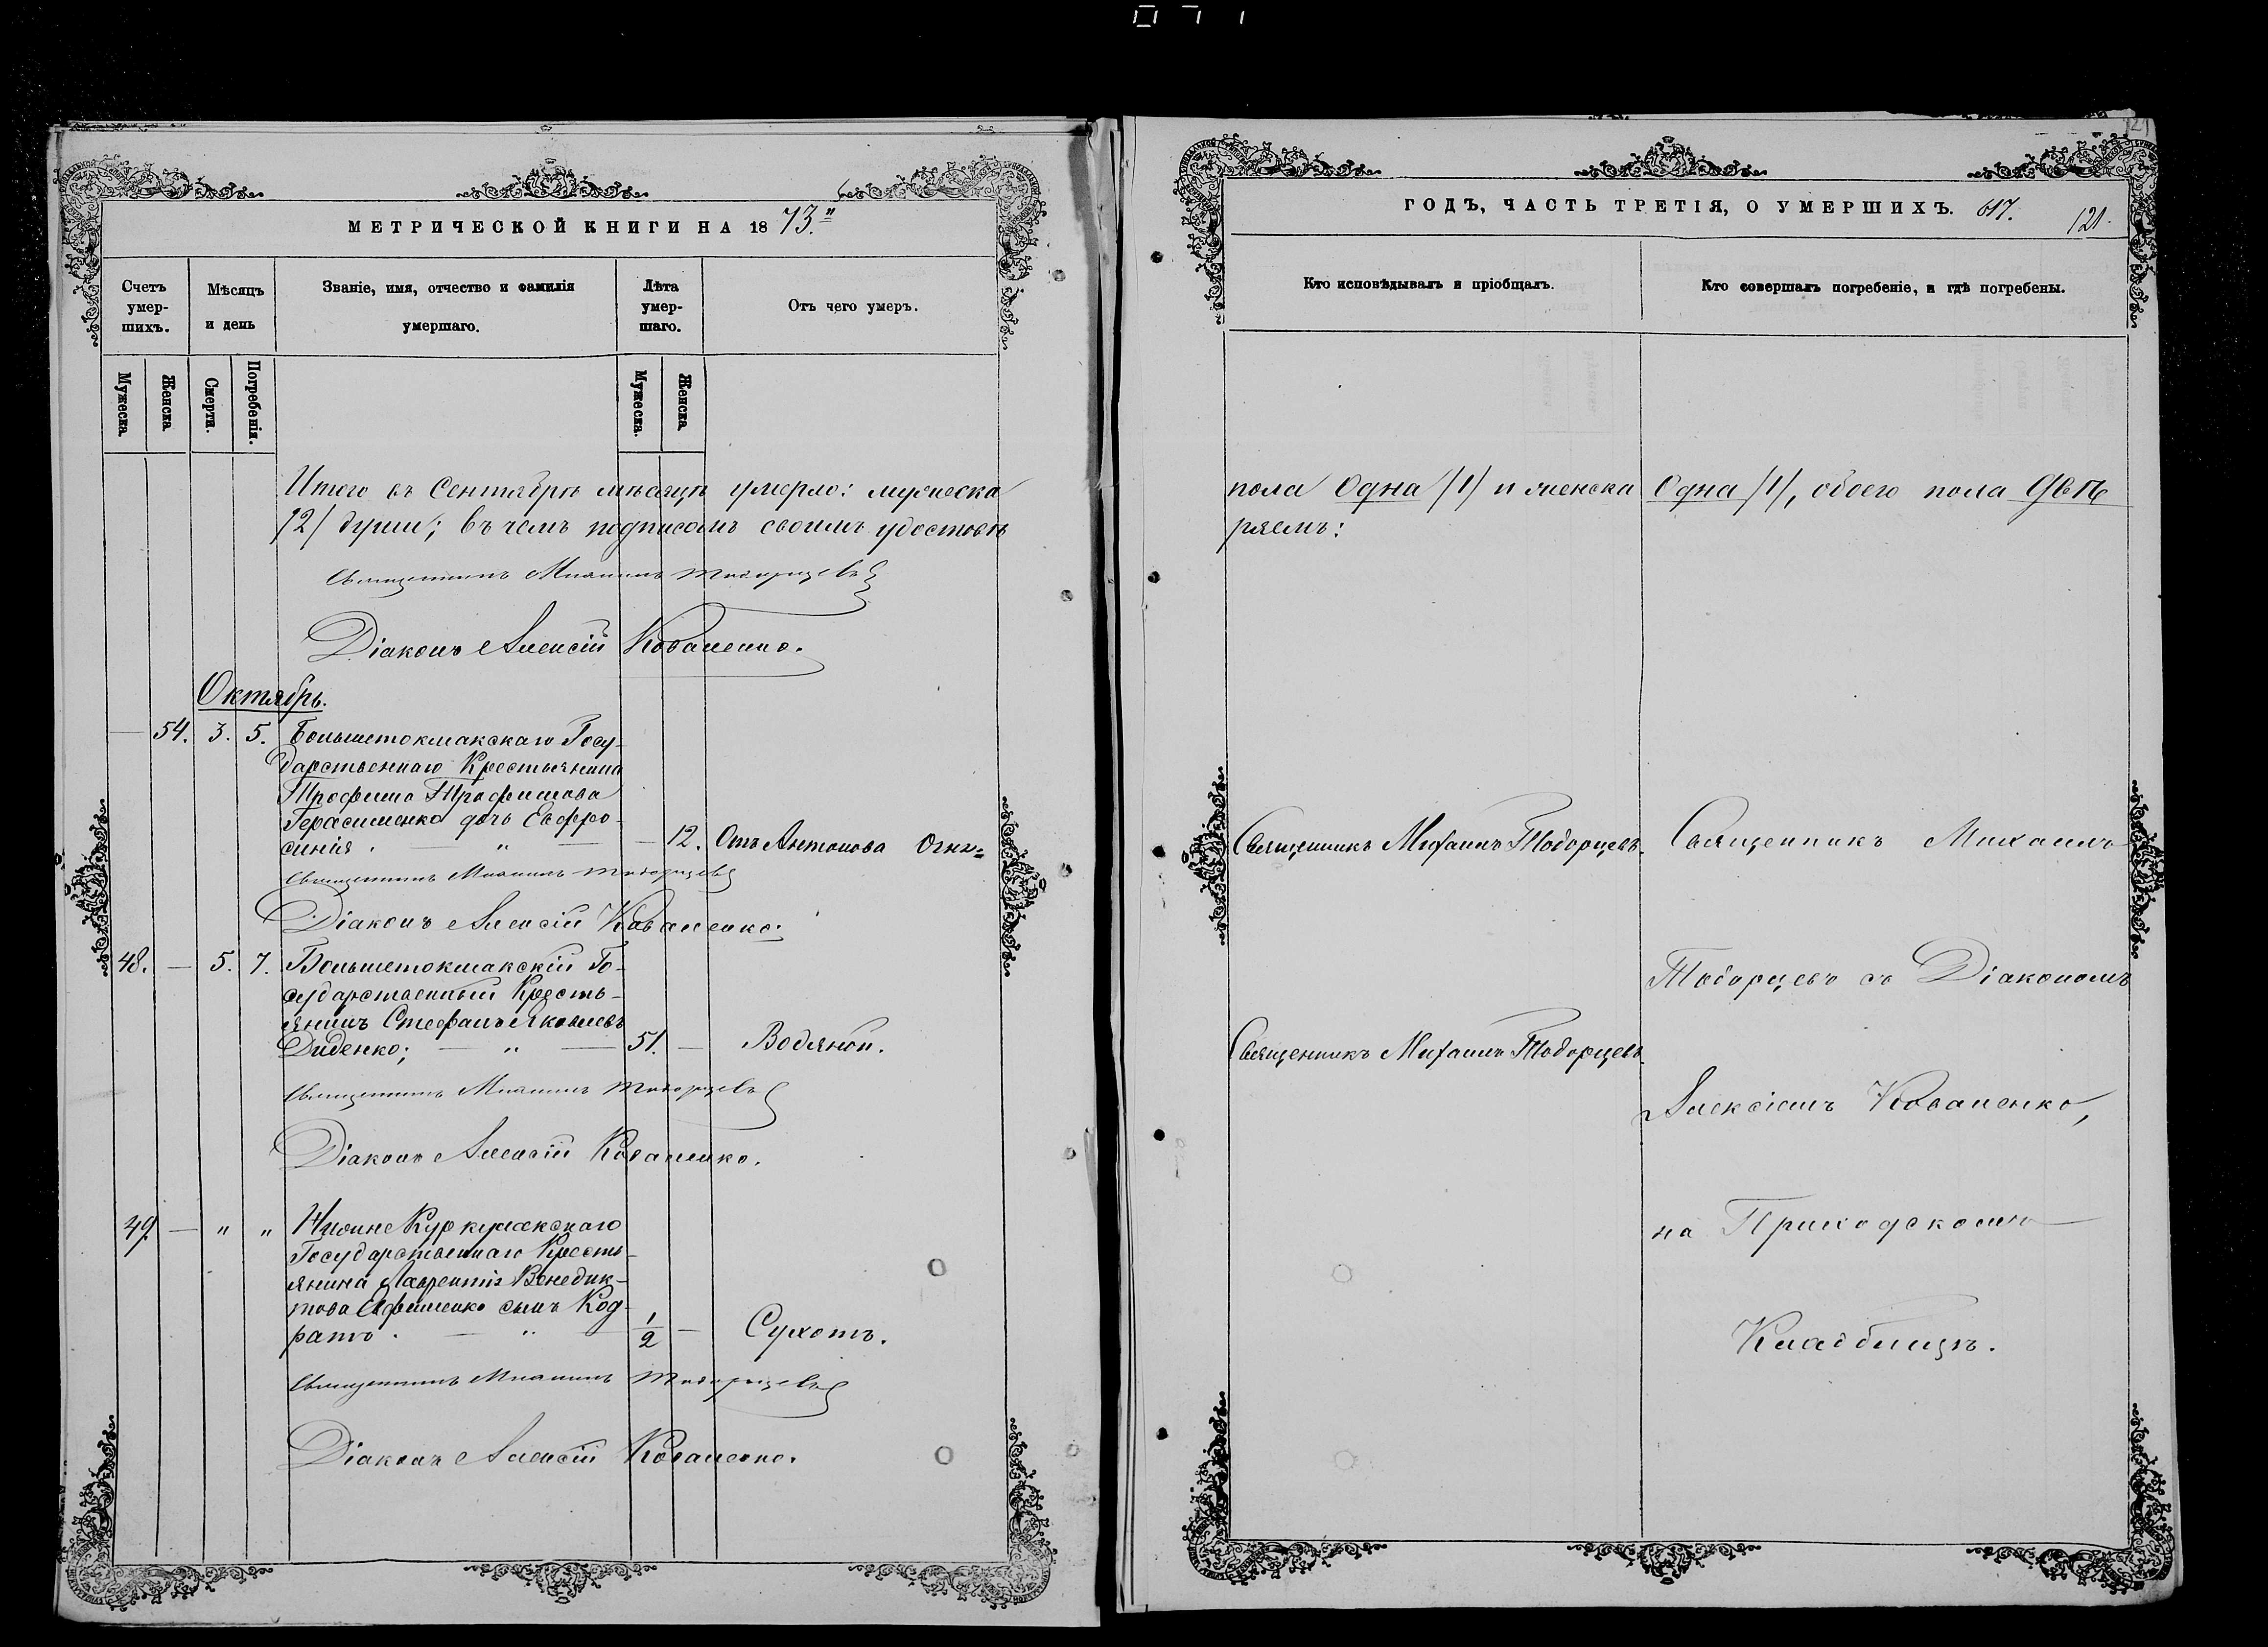 МЕТРИЧЕСКОЙ КНИГИ НА 1873."
Счетъ умер-шихъ.
Мѣсяцъ и день
Званіе, имя, отчество и фамилія умершаго.
Лѣта умер-шаго.
Отъ чего умеръ.
Мужеска.
Женска
Смерти.
Погребенія.
Мужеска.
Женска
Итого въ Сентябрѣ мѣсяцѣ умерло: мужеска
/2/ души; въ чемъ подписомъ своимъ удостовѣ
Священникъ Михаилъ Тодорцевъ
Діаконъ Алексій Коваленко.
Октябрь.
— 54. 3. 5. Большетокмакскаго Госу-
дарственнаго Крестьянина
Трофима Трофимова
Герасименко дочь Евфро-
синія. — " — — 12. Отъ Антонова Огня
Священникъ Михаилъ Тодорцевъ
Діаконъ Алексій Коваленко.
48. — 5. 7. Большетокмакскій Го-
сударственный Кресть-
янинъ Стефанъ Яковлевъ
Диденко; — " — 51. — Водяной.
Священникъ Михаилъ Тодорцевъ
Діаконъ Алексій Коваленко.
49. — " " Нижне Куркулакскаго
Государственнаго Кресть-
янина Лаврентія Венедик-
това Ефименко сынъ Код-
ратъ. — " — 1/2 — Сухотъ.
Священникъ Михаилъ Тодорцевъ
Діаконъ Алексій Коваленко.
ГОДЪ, ЧАСТЬ ТРЕТІЯ, О УМЕРШИХЪ. 617.
121.
Кто исповѣдывалъ и пріобщалъ.
Кто совершалъ погребеніе, и гдѣ погребены.
пола Одна /1/ и женска Одна /1/, обоего пола двѣ
ряемъ:
Священникъ Михаилъ Тодорцевъ.
Священникъ Михаилъ Тодорцевъ.
Священникъ Михаилъ
Тодорцевъ съ Діакономъ
Алексіемъ Коваленко,
на Приходскомъ
Кладбищѣ.